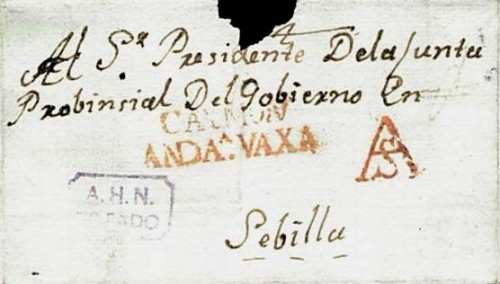 Al Sr Presidente Dela Junta
Probinsial Del Gobierno En
CARMON
ANDA.A VAXA
As
A. H. N.
ESTADO
Sebilla